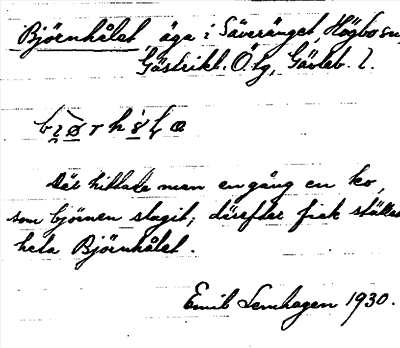 Björnhålet äga i Säveränget, Högbo sn,
Gästrikl. Ö.tg, Gävleb. l.
Där hittade man en gång en ko,
som björnen slagit; därefter fick stället
heta Björnhålet.
Emil Lemhagen 1930.